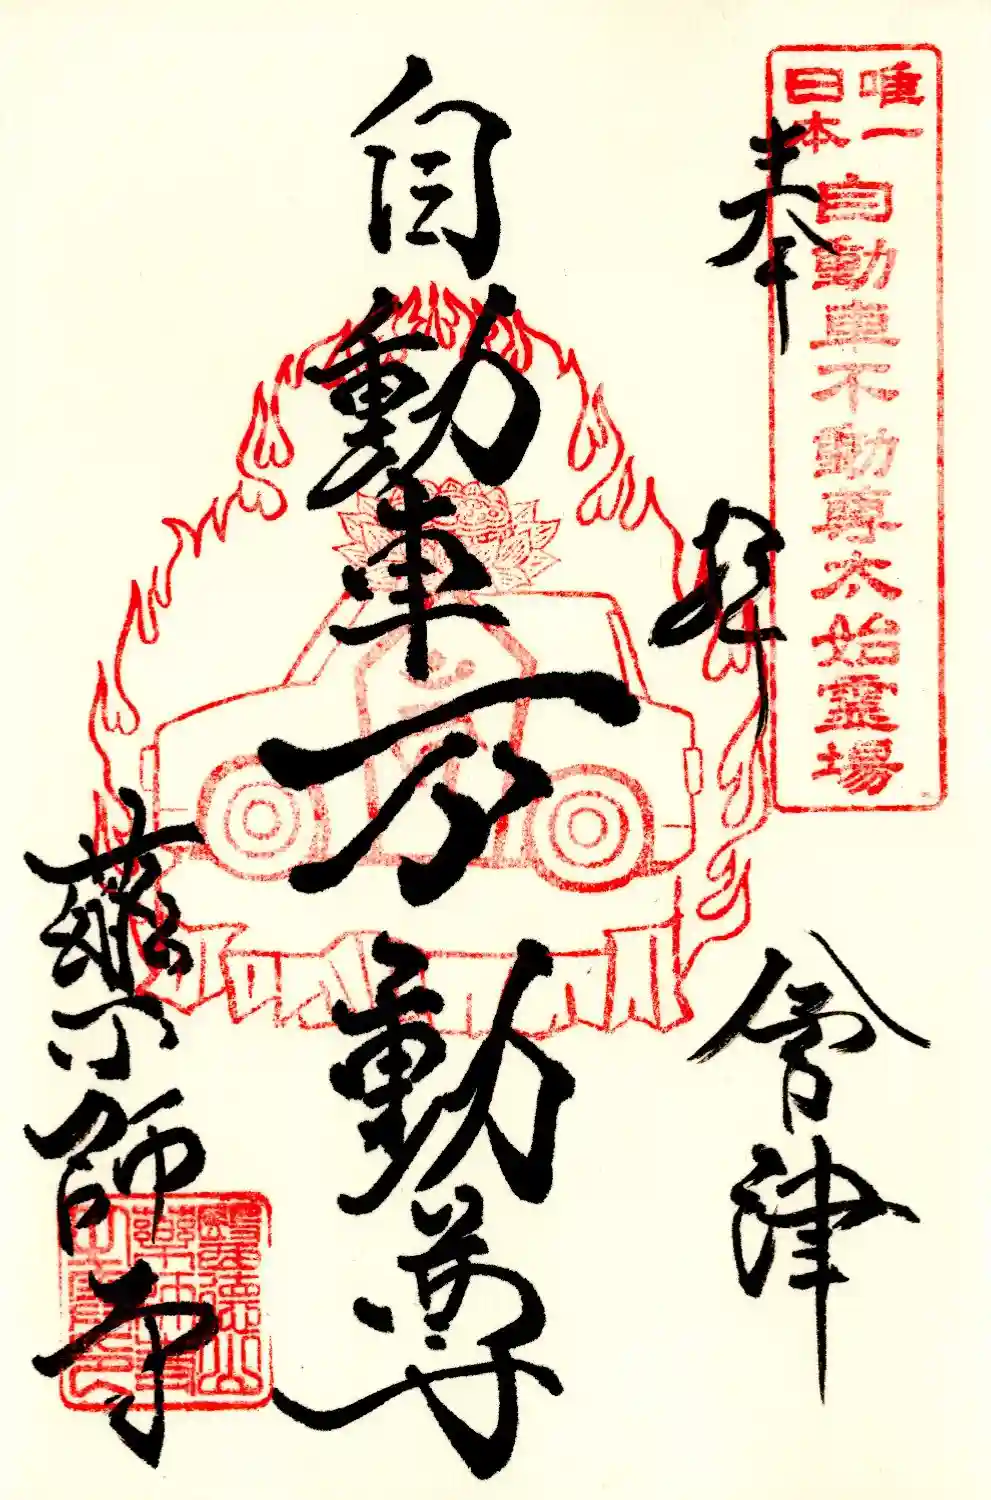 唯一
日本
自動車不動尊太始霊場
奉拝
會津
自動車不動尊
藥師寺